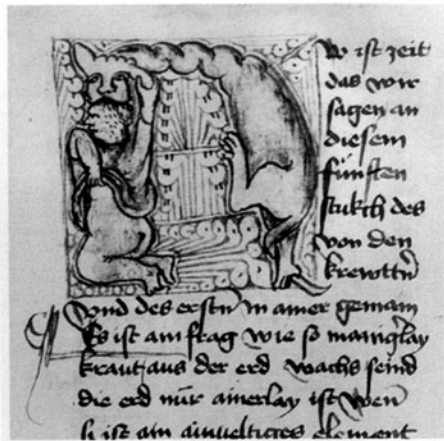 w ist zeit
das wir
sagen an
diesem
fünften
stukch des
von den
krewttn
vnd des erstn in ainer gemain
Es ist ain frag wie so manig lay
kraut aus der erd wachs seind
die erd nür ainerlay ist wen
si ist ain ainueltiges element